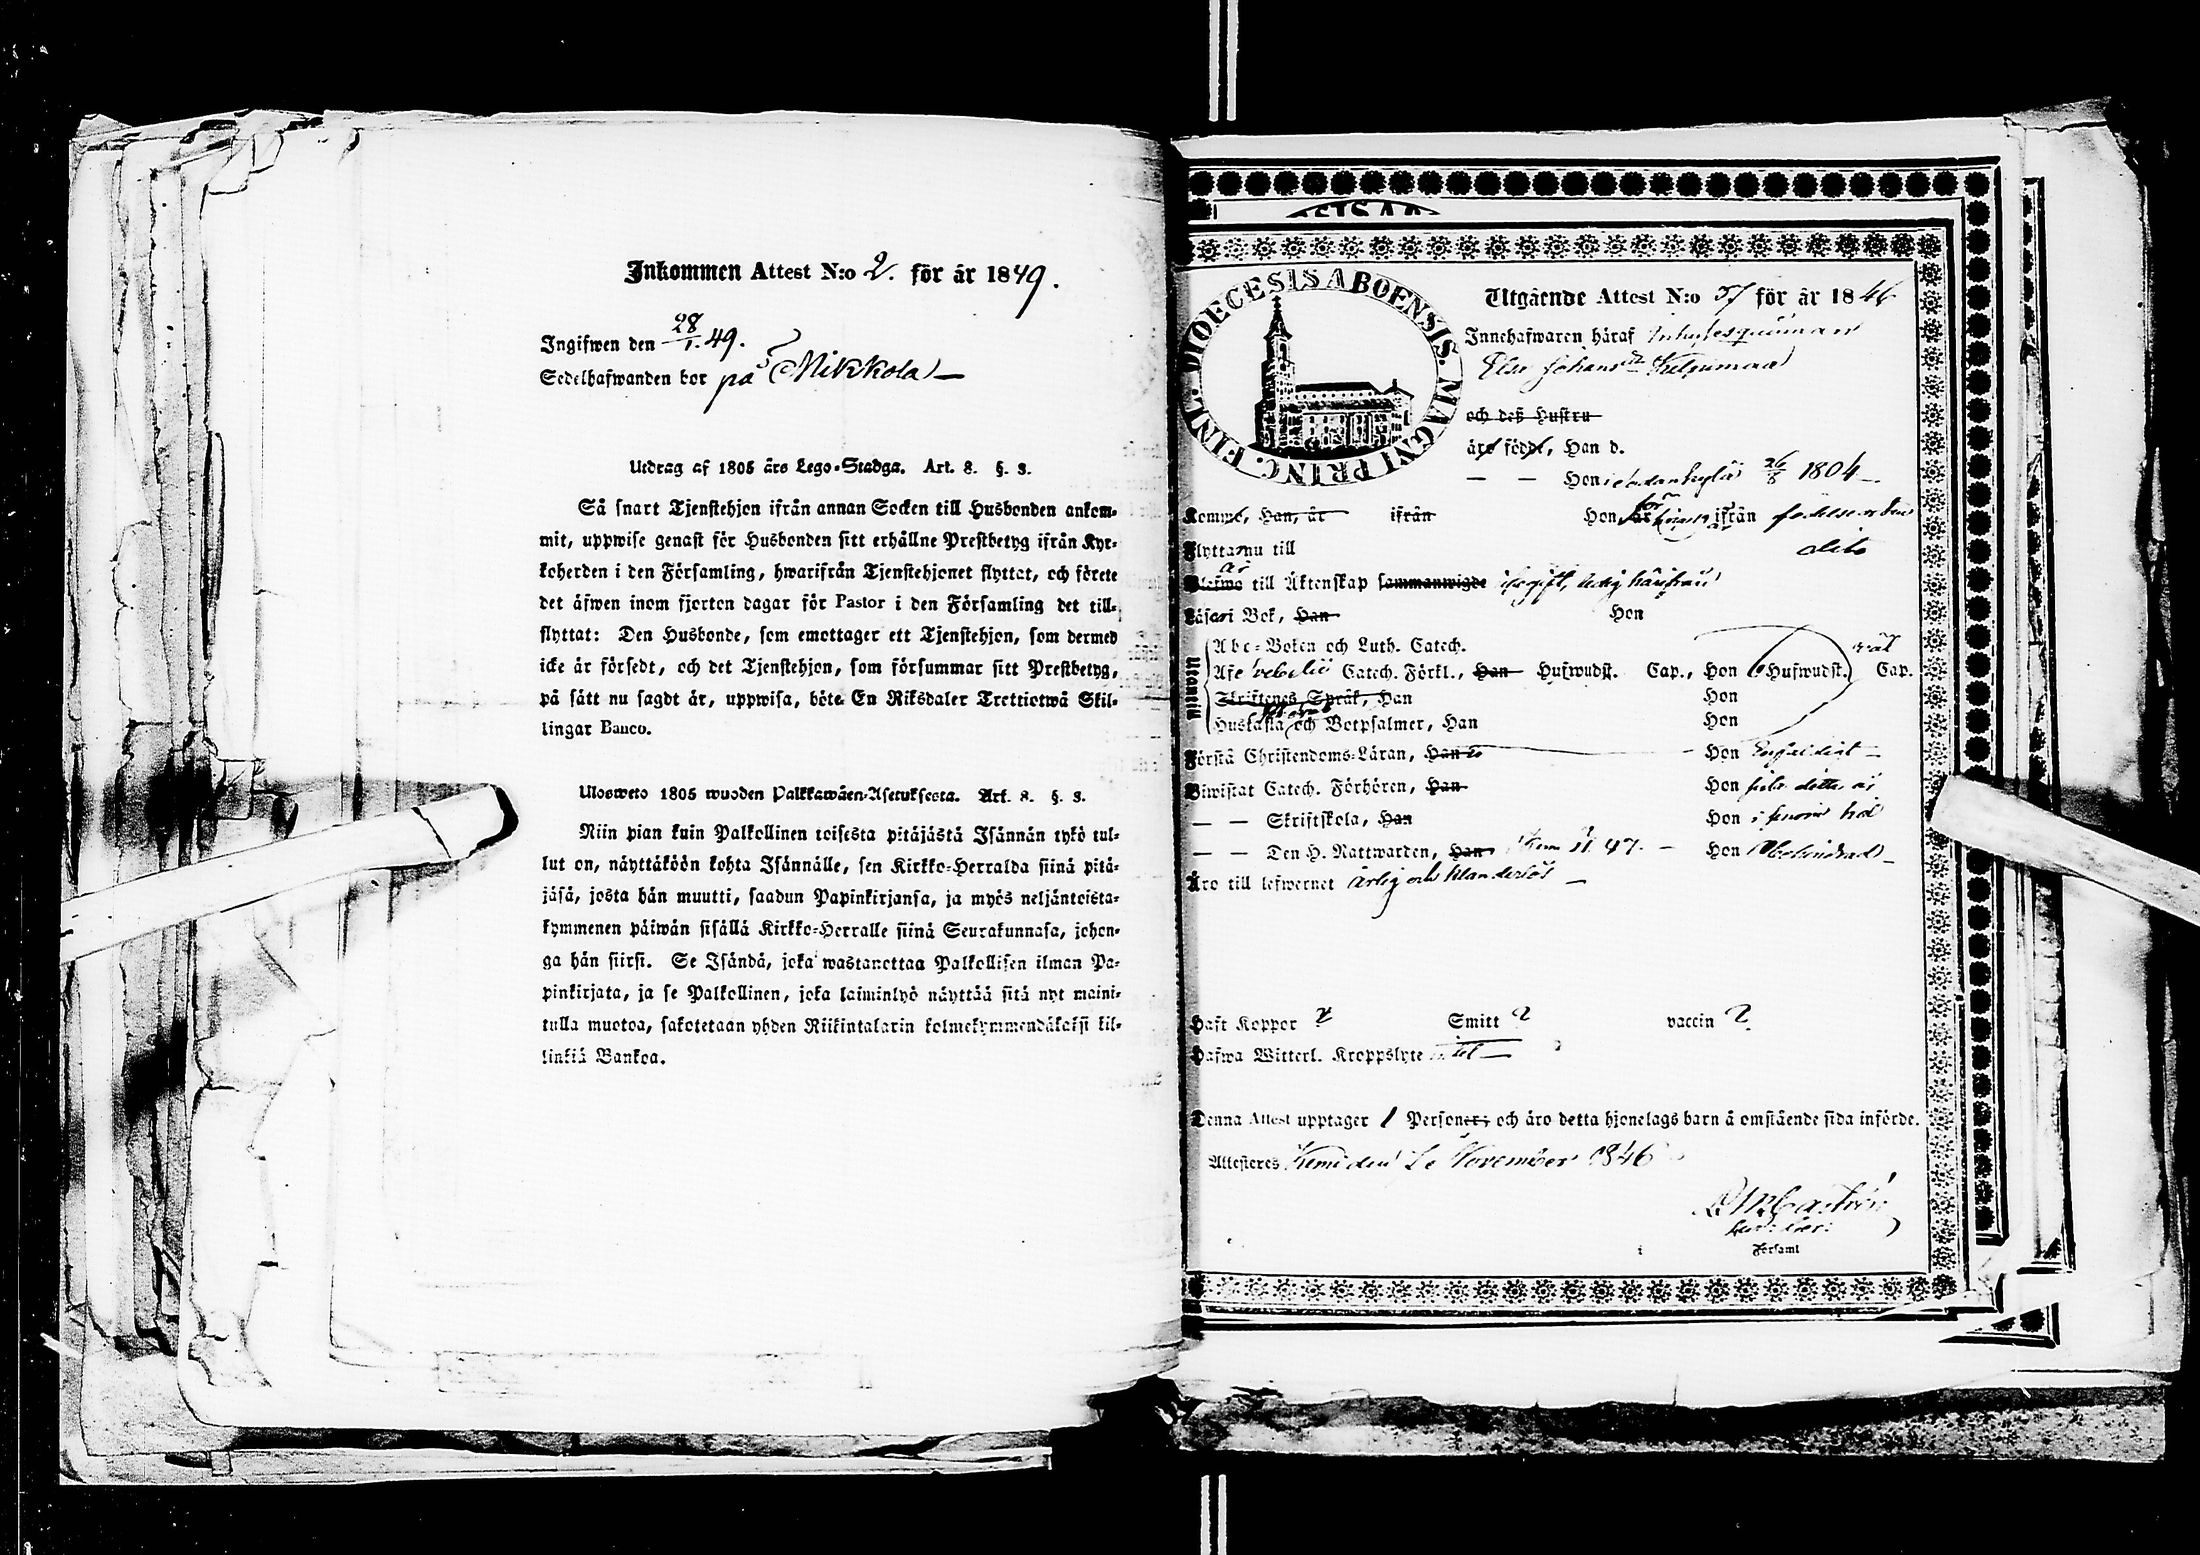 Inkommen Attest N:o 2. för år 1849.
Ingifwen den 28/1. 49.
Sedelhafwanden bor på Mikkola
Utdrag af 1805 års Lego-Stadga. Art. 8. §. 3.
Så snart Tjenstehjon ifrån annan Socken till Husbonden ankom-
mit, uppwise genast för Husbonden sitt erhållne Prestbetyg ifrån Kyr-
koherden i den Församling, hwarifrån Tjenstehjonet flyttat, och förete
det äfwen inom fjorton dagar för Pastor i den Församling det till-
flyttat: Den Husbonde, som emottager ett Tjenstehjon, som dermed
icke är försedt, och det Tjenstehjon, som försummar sitt Prestbetyg,
på sätt nu sagdt är, uppwisa, böte En Riksdaler Trettiotwå Skil-
lingar Banco.
Ulosweto 1805 wuoden Palkkawäen-Asetuksesta. Art. 8. §. 3.
Niin pian kuin Palkollinen toisesta pitäjästä Isännän tykö tul-
lut on, näyttäköön kohta Isännälle, sen Kirkko-Herralda siinä pitä-
jäsä, josta hän muutti, saadun Papinkirjansa, ja myös neljäntoista-
kymmenen päiwän sisällä Kirkko-Herralle siinä Seurakunnasa, johon-
ga hän siirsi. Se Isändä, joka wastanottaa Palkollisen ilman Pa-
pinkirjata, ja se Palkollinen, joka laiminlyö näyttää sitä nyt maini-
tulla muotoa, sakotetaan yhden Riikintalarin kolmekymmendäkaksi kil-
linkiä Bankoa.
DIOECESIS ABOENSIS. MAGNI PRINC. FINL.
Utgående Attest N:o 57 för år 1846
Innehafwaren häraf Inhysesqvinnan
Elsa Johans dr
och deß Hustru
äro född, Han d.
— — Hon 26/8 1804
Komme, Han, är ifrån Hon är ifrån
Flyttar nu till
Blefwo till Äktenskap sammanwigde ogift, ledig härifrån
Läser i Bok, Han Hon
Utantill
Abc-Boken och Luth. Catech.
Af Catech. Förkl., Han Hufwudst. Cap., Hon Hufwudst. Cap.
Skriftenes Språk, Han Hon
Hustafla och Botpsalmer, Han Hon
Förstå Christendoms-Läran, Han Hon
Biwistat Catech. Förhören, Han Hon
— — Skriftskola, Han Hon
— — Den H. Nattwarden, Han Hon
Äro till lefwernet ärlig och klanderlös
Haft Koppor ? Smitt ? vaccin ?
Hafwa Witterl. Kroppslyte
Denna Attest upptager 1 Personer; och äro detta hjonelags barn å omstående sida införde.
Attesteras Kemi den November 1846
Castrén
Församl